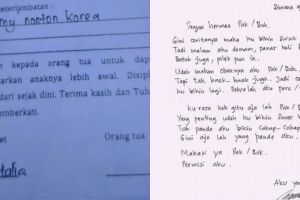 eterlambatan :
my nonton korea
kepada orang tua untuk dap
arkan anaknya lebih awal. Disipl
dari sejak dini. Terima kasih dan Tuh
emberkati.
Orang tua
talia
Dengan hormat Pak / Buk.
Gini ceritanya maka ku bikin surat
Tadi malam aku demam, panas kali
Batuk juga, pilek pun ia.
Udah makan obatnya aku Pak / B
Tapi tak juga. Jadi ce
ku bikin lagi. aku para /
ku rasa kek gitu aja lah Pak /
Yang penting udah ku bikin surat
Tak pande aku bikin Cakap - Cakap
Gini aja lah yang pande aku.
Makasi ya Pak / Buk.
Permisi aku.
Aku ya